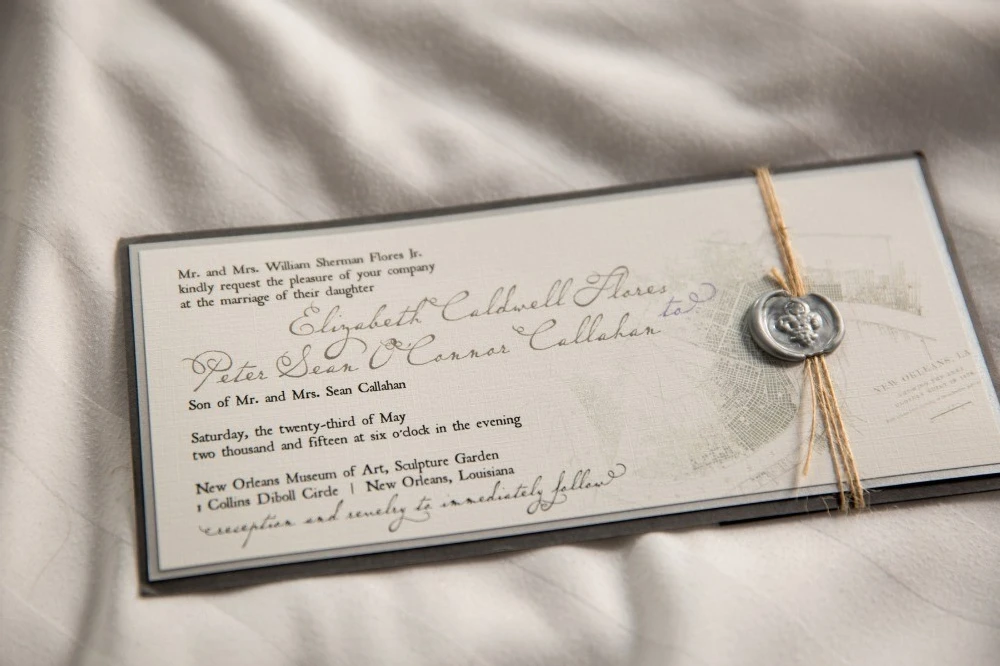 Mr. and Mrs. William Sherman Flores Jr.
kindly request the pleasure of your company
at the marriage of their daughter
Elizabeth Caldwell Flores
to
Peter Sean O'Connor Callahan
Son of Mr. and Mrs. Sean Callahan
Saturday, the twenty-third of May
two thousand and fifteen at six o'clock in the evening
New Orleans Museum of Art, Sculpture Garden
1 Collins Diboll Circle | New Orleans, Louisiana
reception and revelry to immediately follow
NEW ORLEANS, LA